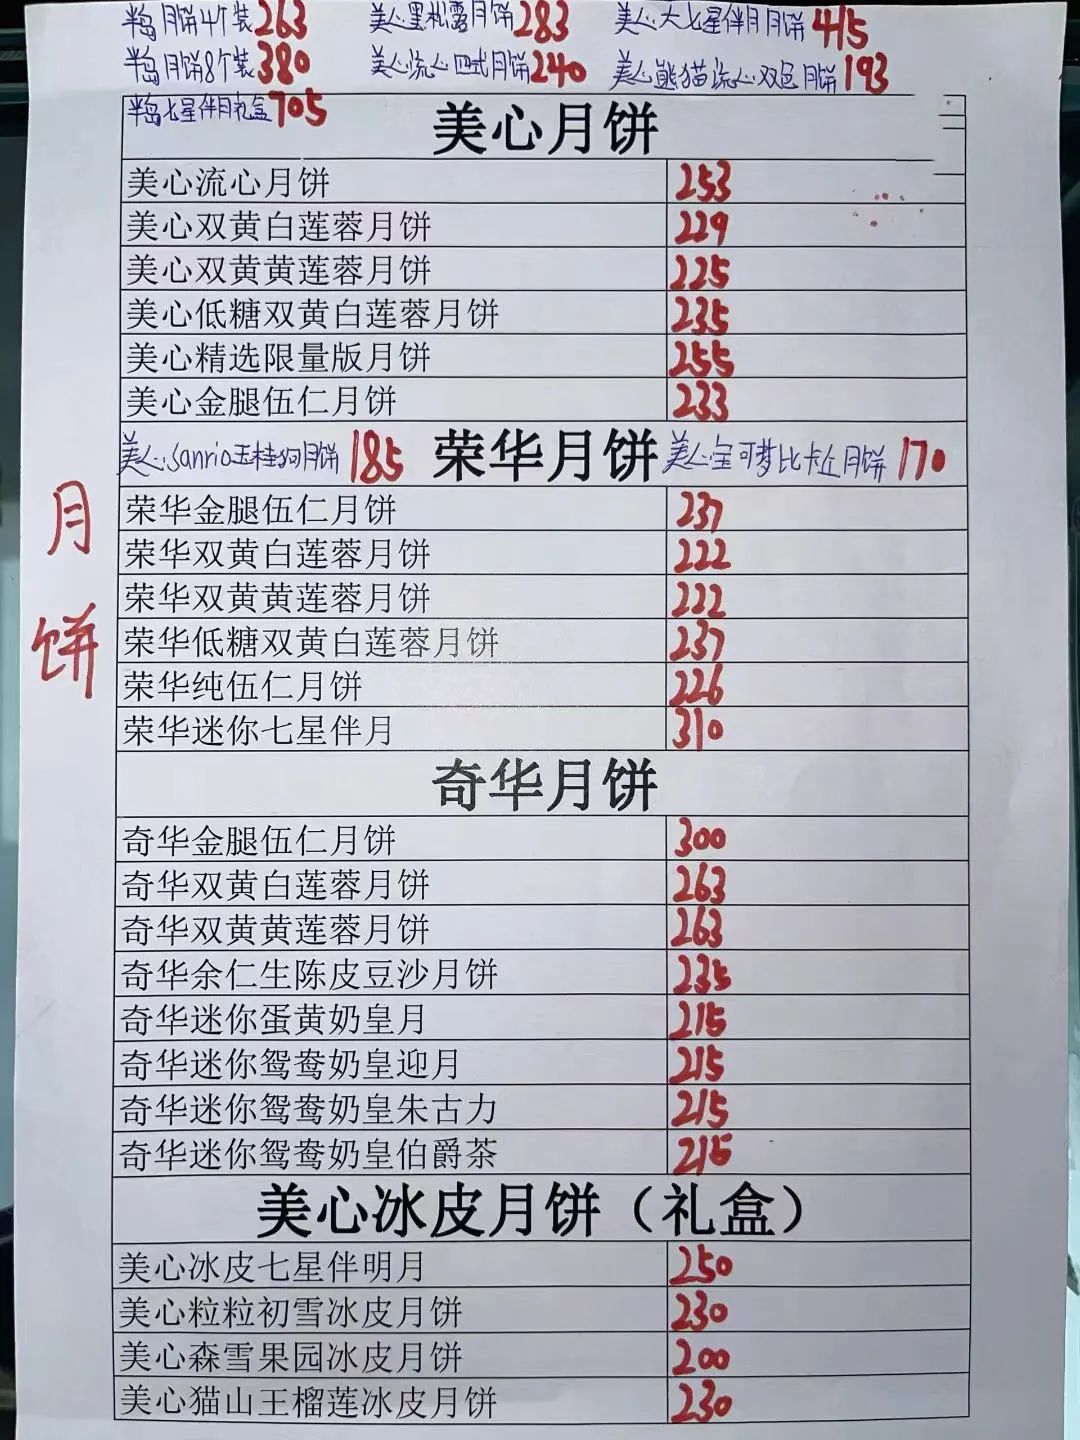 半岛月饼4个装263 美心黑松露月饼283 美心大七星伴月月饼415
半岛月饼8个装380 美心流心四式月饼240 美心熊猫流心双色月饼193
半岛七星伴月礼盒705
美心月饼
美心流心月饼 253
美心双黄白莲蓉月饼 229
美心双黄黄莲蓉月饼 225
美心低糖双黄白莲蓉月饼 235
美心精选限量版月饼 255
美心金腿伍仁月饼 233
美心Sanrio玉桂狗月饼 185 荣华月饼 美心宝可梦比卡丘月饼 170
月饼
荣华金腿伍仁月饼 237
荣华双黄白莲蓉月饼 222
荣华双黄黄莲蓉月饼 222
荣华低糖双黄白莲蓉月饼 237
荣华纯伍仁月饼 226
荣华迷你七星伴月 310
奇华月饼
奇华金腿伍仁月饼 300
奇华双黄白莲蓉月饼 263
奇华双黄黄莲蓉月饼 263
奇华余仁生陈皮豆沙月饼 235
奇华迷你蛋黄奶皇月 215
奇华迷你鸳鸯奶皇迎月 215
奇华迷你鸳鸯奶皇朱古力 215
奇华迷你鸳鸯奶皇伯爵茶 215
美心冰皮月饼（礼盒）
美心冰皮七星伴明月 250
美心粒粒初雪冰皮月饼 230
美心森雪果园冰皮月饼 200
美心猫山王榴莲冰皮月饼 230